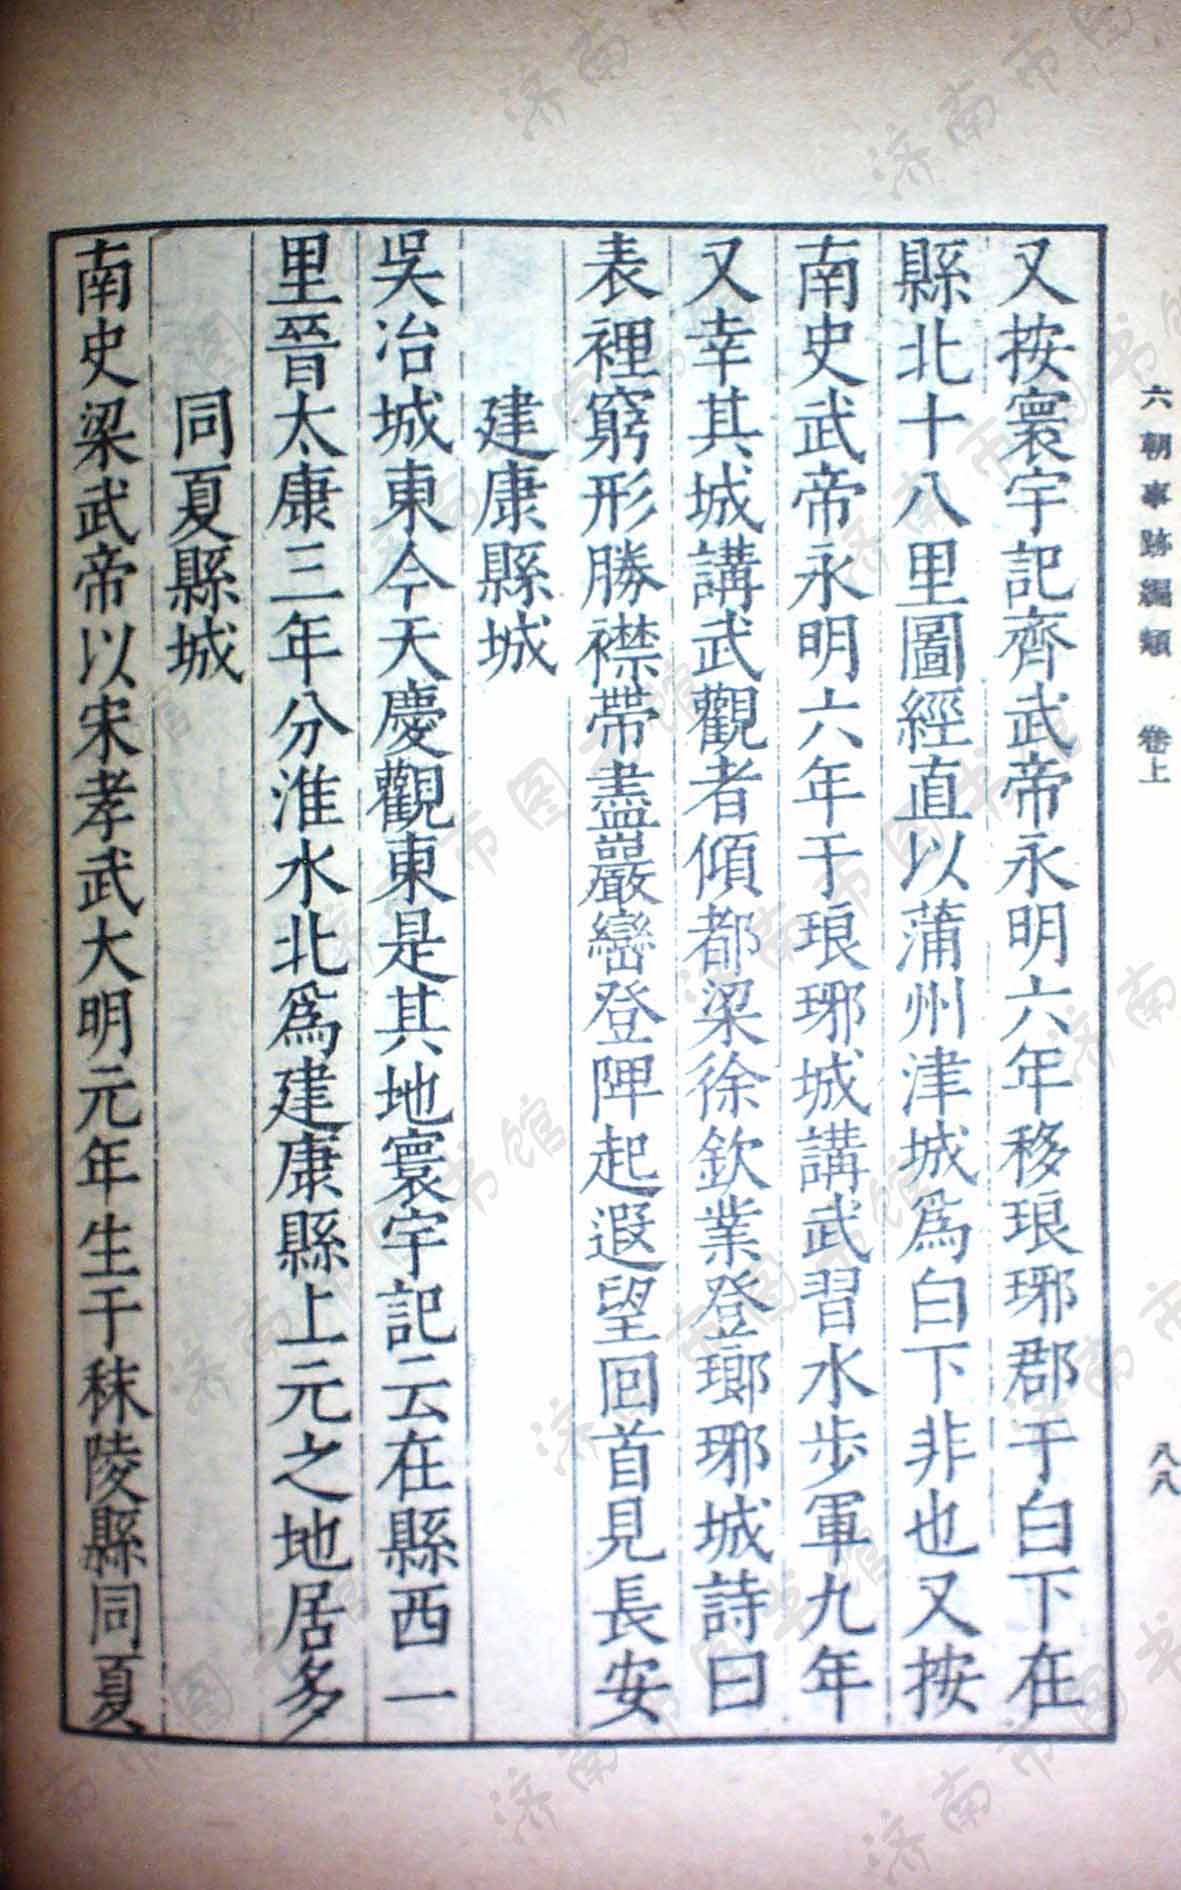 六朝事跡編類 卷上
八八
又按寰宇記齊武帝永明六年移琅琊郡于白下在
縣北十八里圖經直以蒲州津城爲白下非也又按
南史武帝永明六年于琅琊城講武習水步軍九年
又幸其城講武觀者傾都梁徐欽業登瑯琊城詩曰
表裡窮形勝襟帶盡巖巒登陴起遐望回首見長安
建康縣城
吳冶城東今天慶觀東是其地寰宇記云在縣西一
里晉太康三年分淮水北爲建康縣上元之地居多
同夏縣城
南史梁武帝以宋孝武大明元年生于秣陵縣同夏
济南市图书馆